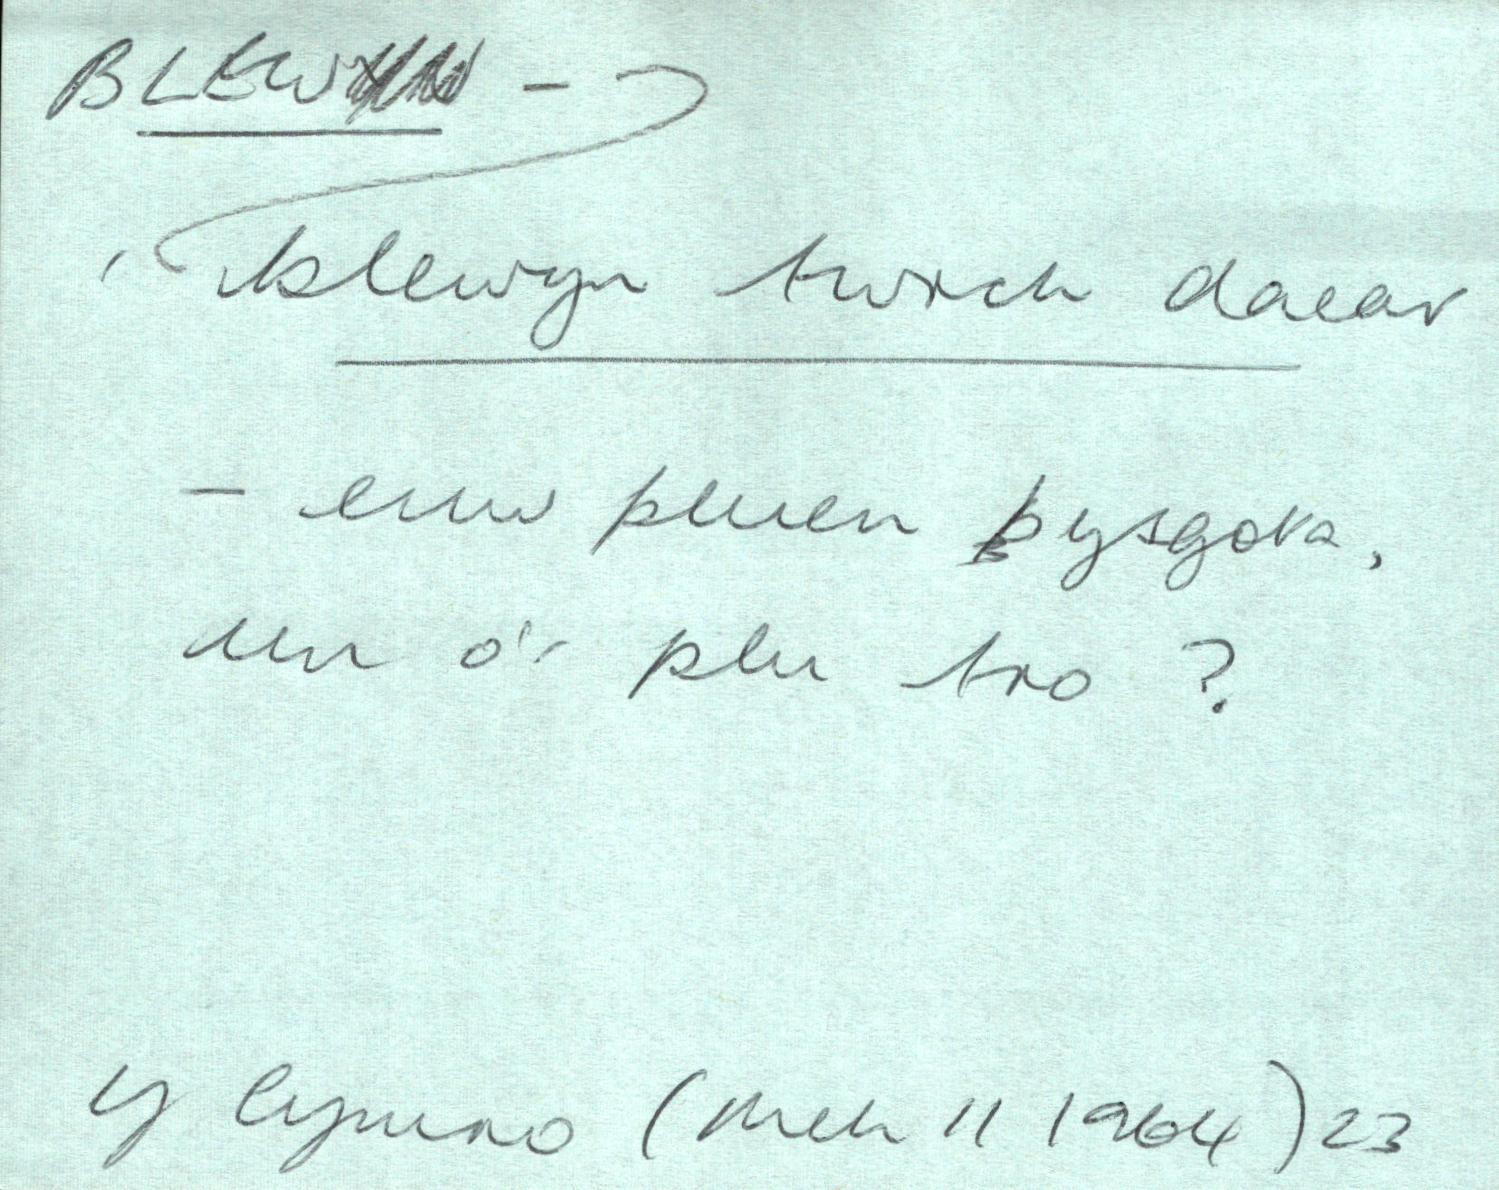 BLEWYN -
blewyn twrch daear
- enw pluen pysgota,
un o'r plu tro ?
Y Cymro (Meh 11 1964) 23